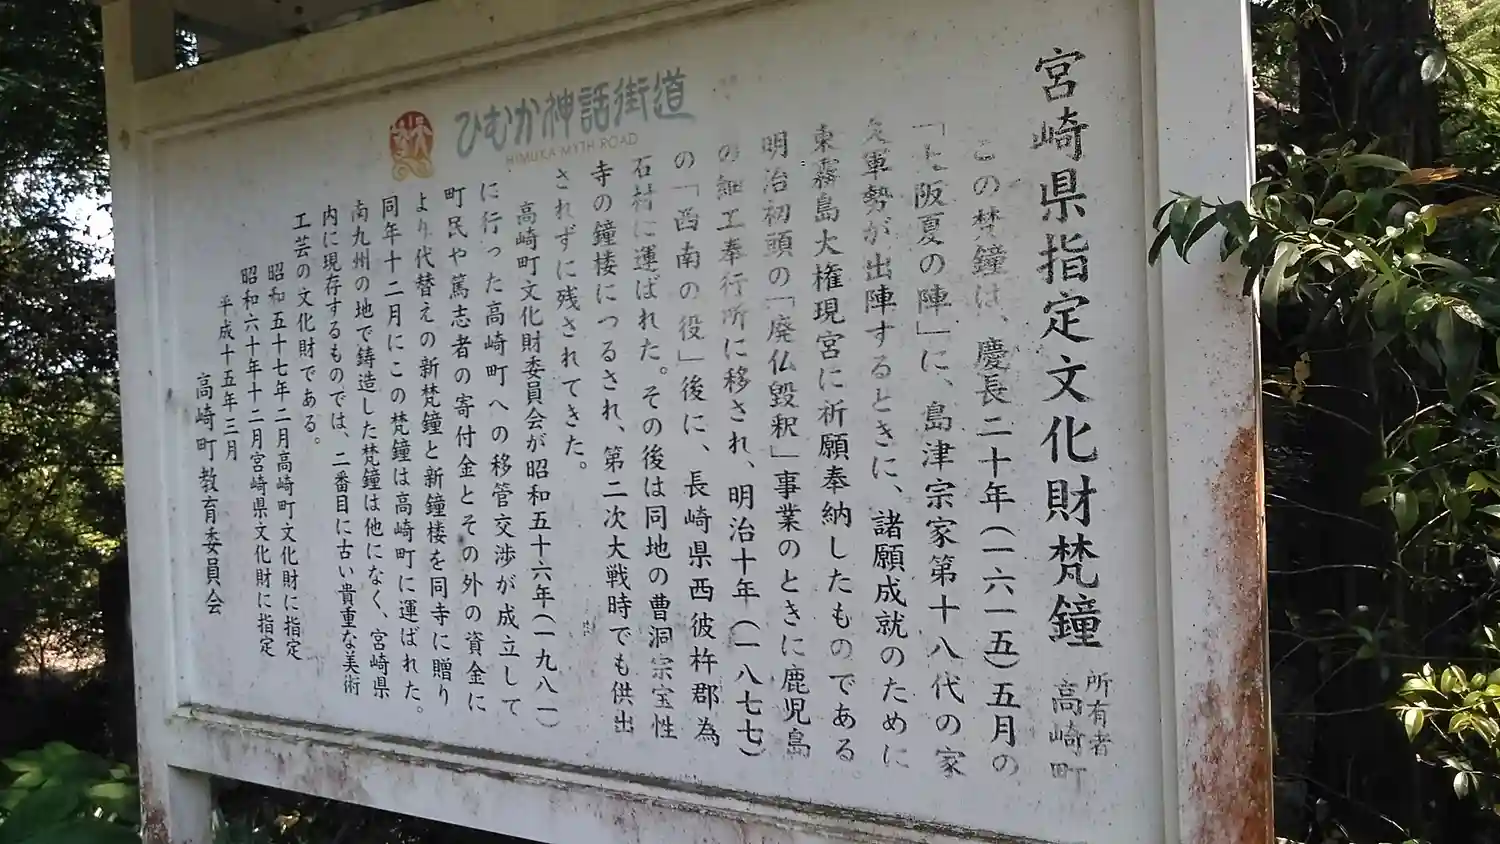 宮崎県指定文化財梵鐘
所有者
高崎町
この梵鐘は、慶長二十年(一六一五)五月の
「大阪夏の陣」に、島津宗家第十八代の家
久軍勢が出陣するときに、諸願成就のために
東霧島大権現宮に祈願奉納したものである。
明治初頭の「廃仏毀釈」事業のときに鹿児島
の細工奉行所に移され、明治十年(一八七七)
の「西南の役」後に、長崎県西彼杵郡為
石村に運ばれた。その後は同地の曹洞宗宝性
寺の鐘楼につるされ、第二次大戦時でも供出
されずに残されてきた。
高崎町文化財委員会が昭和五十六年(一九八一)
に行った高崎町への移管交渉が成立して
町民や篤志者の寄付金とその外の資金に
より代替えの新梵鐘と新鐘楼を同寺に贈り
同年十二月にこの梵鐘は高崎町に運ばれた。
南九州の地で鋳造した梵鐘は他になく、宮崎県
内に現存するものでは、二番目に古い貴重な美術
工芸の文化財である。
昭和五十七年二月高崎町文化財に指定
昭和六十年十二月宮崎県文化財に指定
平成十五年三月
高崎町教育委員会
ひむか神話街道
HIMUKA MYTH ROAD